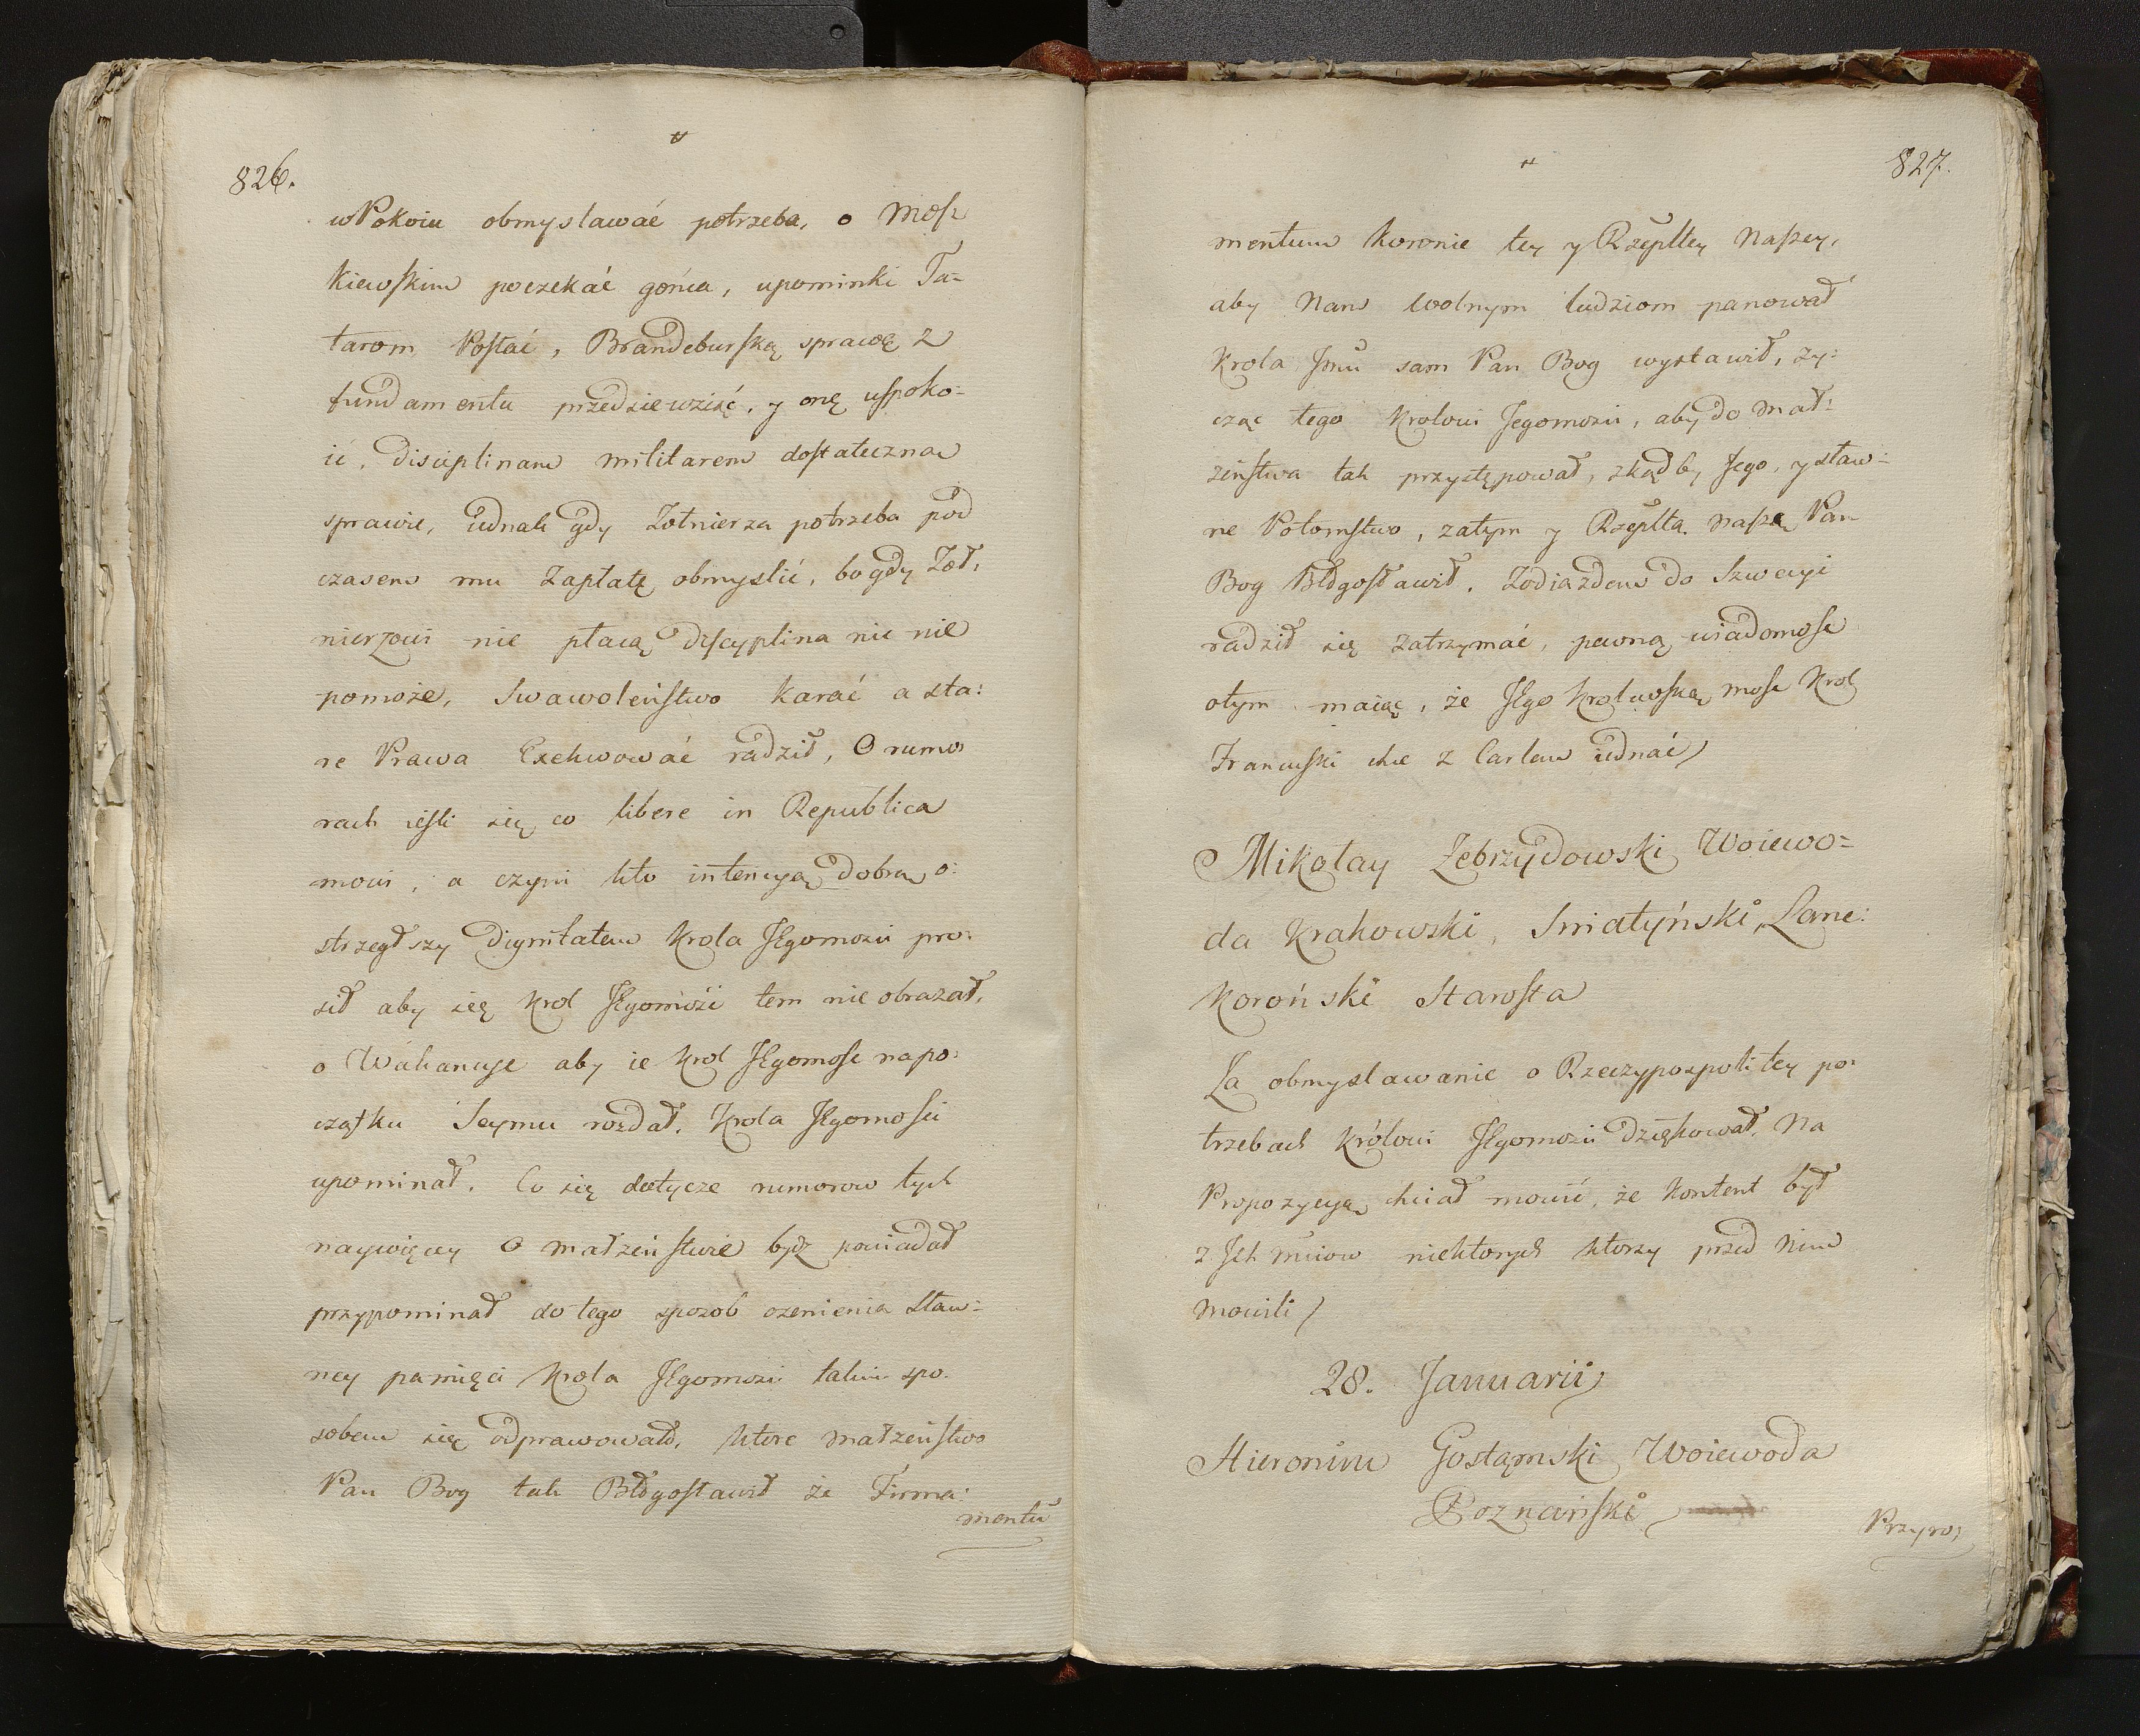 826.
w Pokoiu obmyslawać potrzeba, o Mosz
kiewskim poczekać gońca, upominki Ta=
tarom Posłać, Brandeburską sprawę z
fundamentu przedsiewziąć, y onę uspoko=
ić, Disciplinam militarem dostateczną
sprawić, iednak gdy Zołnierza potrzeba pod
czasem mu Zapłatę obmyslić, bo gdy Zoł,
nierzowi nie płacą Discyplina nic nie
pomoże, Swawoleństwo karać a sta:
re Prawa Exekwować radził, O rumo
rach ieśli się co libere in Republica
mowi, a czyni kto intencyą dobrą o:
strzegłszy Dignitatem Krola JEgomosci pro:
sił aby się Krol JEgomość tem nie obrazał,
o Wakancye aby ie Krol JEgomość napo:
czątku Seymu rozdał, Krola JEgomości
upominał. Co się dotycze rumorow tych
naywięcey O małżeństwie bydź powiadał
przypominał do tego sposob ozenienia sław=
ney pamięci Krola JEgomosci takim spo.
sobem się odprawował, ktore małżeństwo
Pan Bog tak Błdgosławił że Firma:
mentū
827.
mentum koronie tey y Rzepltey naszey,
aby nam wolnym ludziom panował
Krola Jmū sam Pan Bog wystawił, zy:
cząc tego Krolowi Jegomosci, aby do mał:
żeństwa tak przystępował, zkądby Jego, y sław=
ne Potomstwo, zatym y Rzeplta. naszą Pan
Bog Błdgosławił. Zodiazdem do Szwecyi
radził się zatrzymać, pewną wiadomość
otym maiąc, że JEgo Krolewską mość Krol
Francuski chce z Carlem iednać
Mikołay Zebrzydowski Woiewo=
da Krakowski, Sniatyński, Lanc:
koroński Starosta
Za obmyslawanie o Rzeczypospolitey po:
trzebach Królowi JEgomosci Dziękował, Na
Propozycyą chciał mowić, że kontent był
z Ich mciow niektorych ktorzy przed nim
mowili
28. Januarii
Hieronim Gostąmski Woiewoda
Poznański
Przyro: